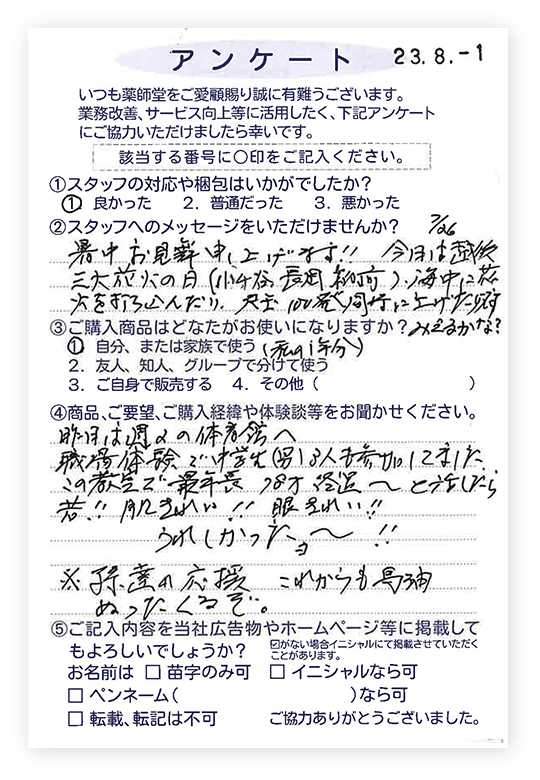 アンケート
23.8.-1
いつも薬師堂をご愛顧賜り誠に有難うございます。
業務改善、サービス向上等に活用したく、下記アンケート
にご協力いただけましたら幸いです。
該当する番号に○印をご記入ください。
①スタッフの対応や梱包はいかがでしたか?
① 良かった 2. 普通だった 3. 悪かった
②スタッフへのメッセージをいただけませんか? 7/26
暑中お見舞申し上げます!! 今日は越後
三大花火の日(小千谷、長岡、柏崎)、海中に花
火を打ち込んだり、尺玉100発同時に上げたり
③ご購入商品はどなたがお使いになりますか? みえるかな?
① 自分、または家族で使う(私の1年分)
2. 友人、知人、グループで分けて使う
3. ご自身で販売する 4. その他( )
④商品、ご要望、ご購入経緯や体験談等をお聞かせください。
昨日は週2の体育館へ
職場体験で中学生(男)3人も参加してました
この教室で最年長 78才 〜と話したら
若!! 肌きれい!! 眼きれい!!
うれしかったョ〜!!
※ 孫達の応援 これからも馬油
ぬったくるぞ。
⑤ご記入内容を当社広告物やホームページ等に掲載して
もよろしいでしょうか? ☑がない場合イニシャルにて掲載させていただく
ことがあります。
お名前は □ 苗字のみ可 □ イニシャルなら可
□ ペンネーム( )なら可
□ 転載、転記は不可 ご協力ありがとうございました。